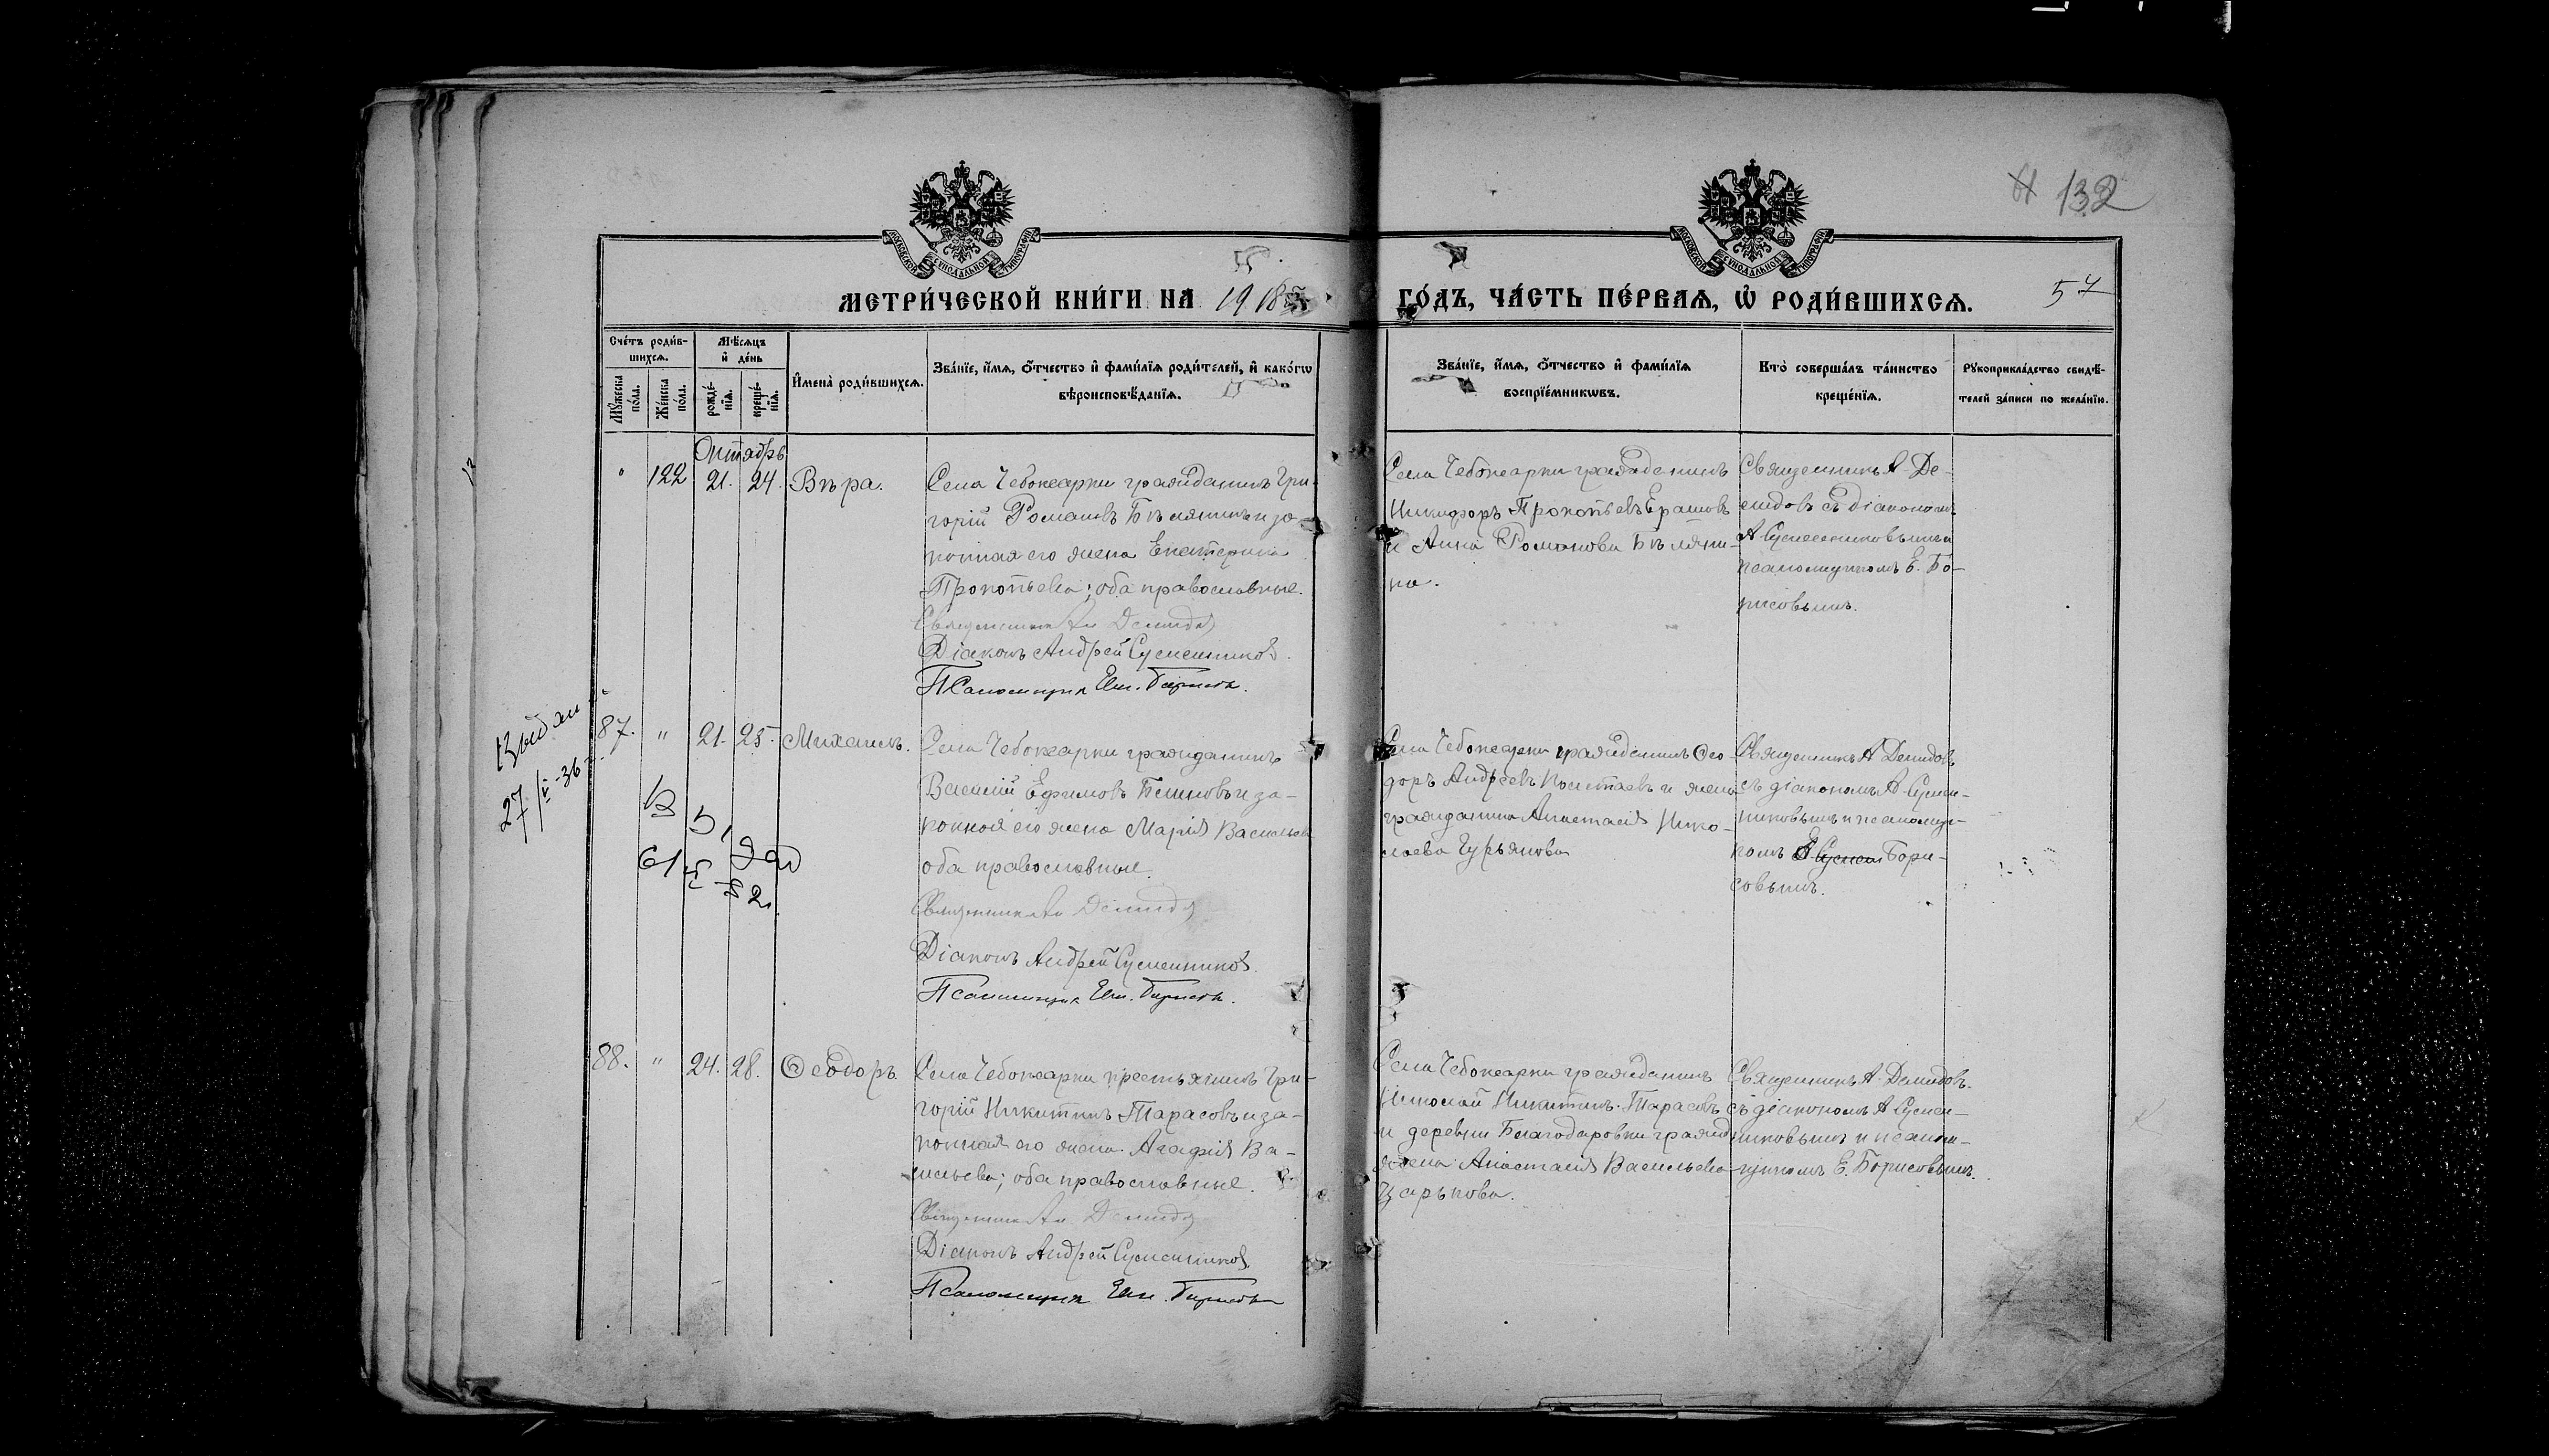 132
МОСКОВСКОЙ СУНОДАЛЬНОЙ ТИПОГРАФІИ
МОСКОВСКОЙ СУНОДАЛЬНОЙ ТИПОГРАФІИ
МЕТРИ́ЧЕСКОЙ КНИ́ГИ НА 1918
ГО́ДЪ, ЧА́СТЬ ПЕ́РВАЯ, Ѡ҆ РОДИ́ВШИХСѦ.
57
Сче́тъ роди́в-
шихсѧ.
Мѣ́сѧцъ
и҆ де́нь
Мꙋ́жеска
по́ла.
Же́нска
по́ла.
рожде́-
нїѧ.
креще́-
нїѧ.
И҆мена̀ роди́вшихсѧ.
Зва́нїе, и҆́мѧ, ѻ҆́тчество и҆ фами́лїѧ роди́телей, и҆ како́гѡ
вѣроисповѣ́данїѧ.
Зва́нїе, и҆́мѧ, ѻ҆́тчество и҆ фами́лїѧ
воспрїе́мникѡвъ.
Кто̀ соверша́лъ та́инство
креще́нїѧ.
Рꙋкоприкла́дство свидѣ́-
телей за́писи по жела́нїю.
Октябрь
122 21. 24. Вѣра.
Села Чебоксарки гражданинъ Гри-
горій Романовъ Бѣлянинъ и за-
конная его жена Екатерина
Прокопьева; оба православные.
Священникъ Ал Демидов
Діаконъ Андрей Сусленников.
Псаломщик Евг. Борисов.
Села Чебоксарки гражданинъ
Никифоръ Прокопьевъ Ерашовъ
и Анна Романова Бѣляни-
на.
Священникъ А. Де-
мидовъ съ діакономъ
А Сусленниковымъ и
псаломщикомъ Е. Бо-
рисовымъ.
Выдан
27/V-36
87. " 21. 25. Михаилъ.
Села Чебоксарки гражданинъ
Василій Ефимовъ Блиновъ и за-
конная его жена Марія Васильева
оба православные.
Священникъ Ал Демидов
Діаконъ Андрей Сусленников.
Псаломщик Евг. Борисов.
Села Чебоксарки гражданинъ Ѳео-
доръ Андреевъ и жена
гражданина Анастасія Нико-
лаева Гурьянова
Священникъ А Демидовъ
съ діакономъ А Суслен-
никовымъ и псаломщи-
комъ Е Бори-
совымъ.
88. " 24. 28. Ѳеодоръ.
Села Чебоксарки крестьянинъ Гри-
горій Никитинъ Тарасовъ и за-
конная его жена Агафія Ва-
сильева; оба православные.
Священник Ал Демидов
Діаконъ Андрей Сусленников.
Псаломщик Евг. Борисов
Села Чебоксарки гражданинъ
Николай Никитинъ Тарасовъ
и деревни Благодаровки гражд
жена Анастасія Васильева
Царькова.
Священникъ А. Демидовъ
съ діакономъ А Суслен-
никовымъ и псалом-
щикомъ Е. Борисовымъ.